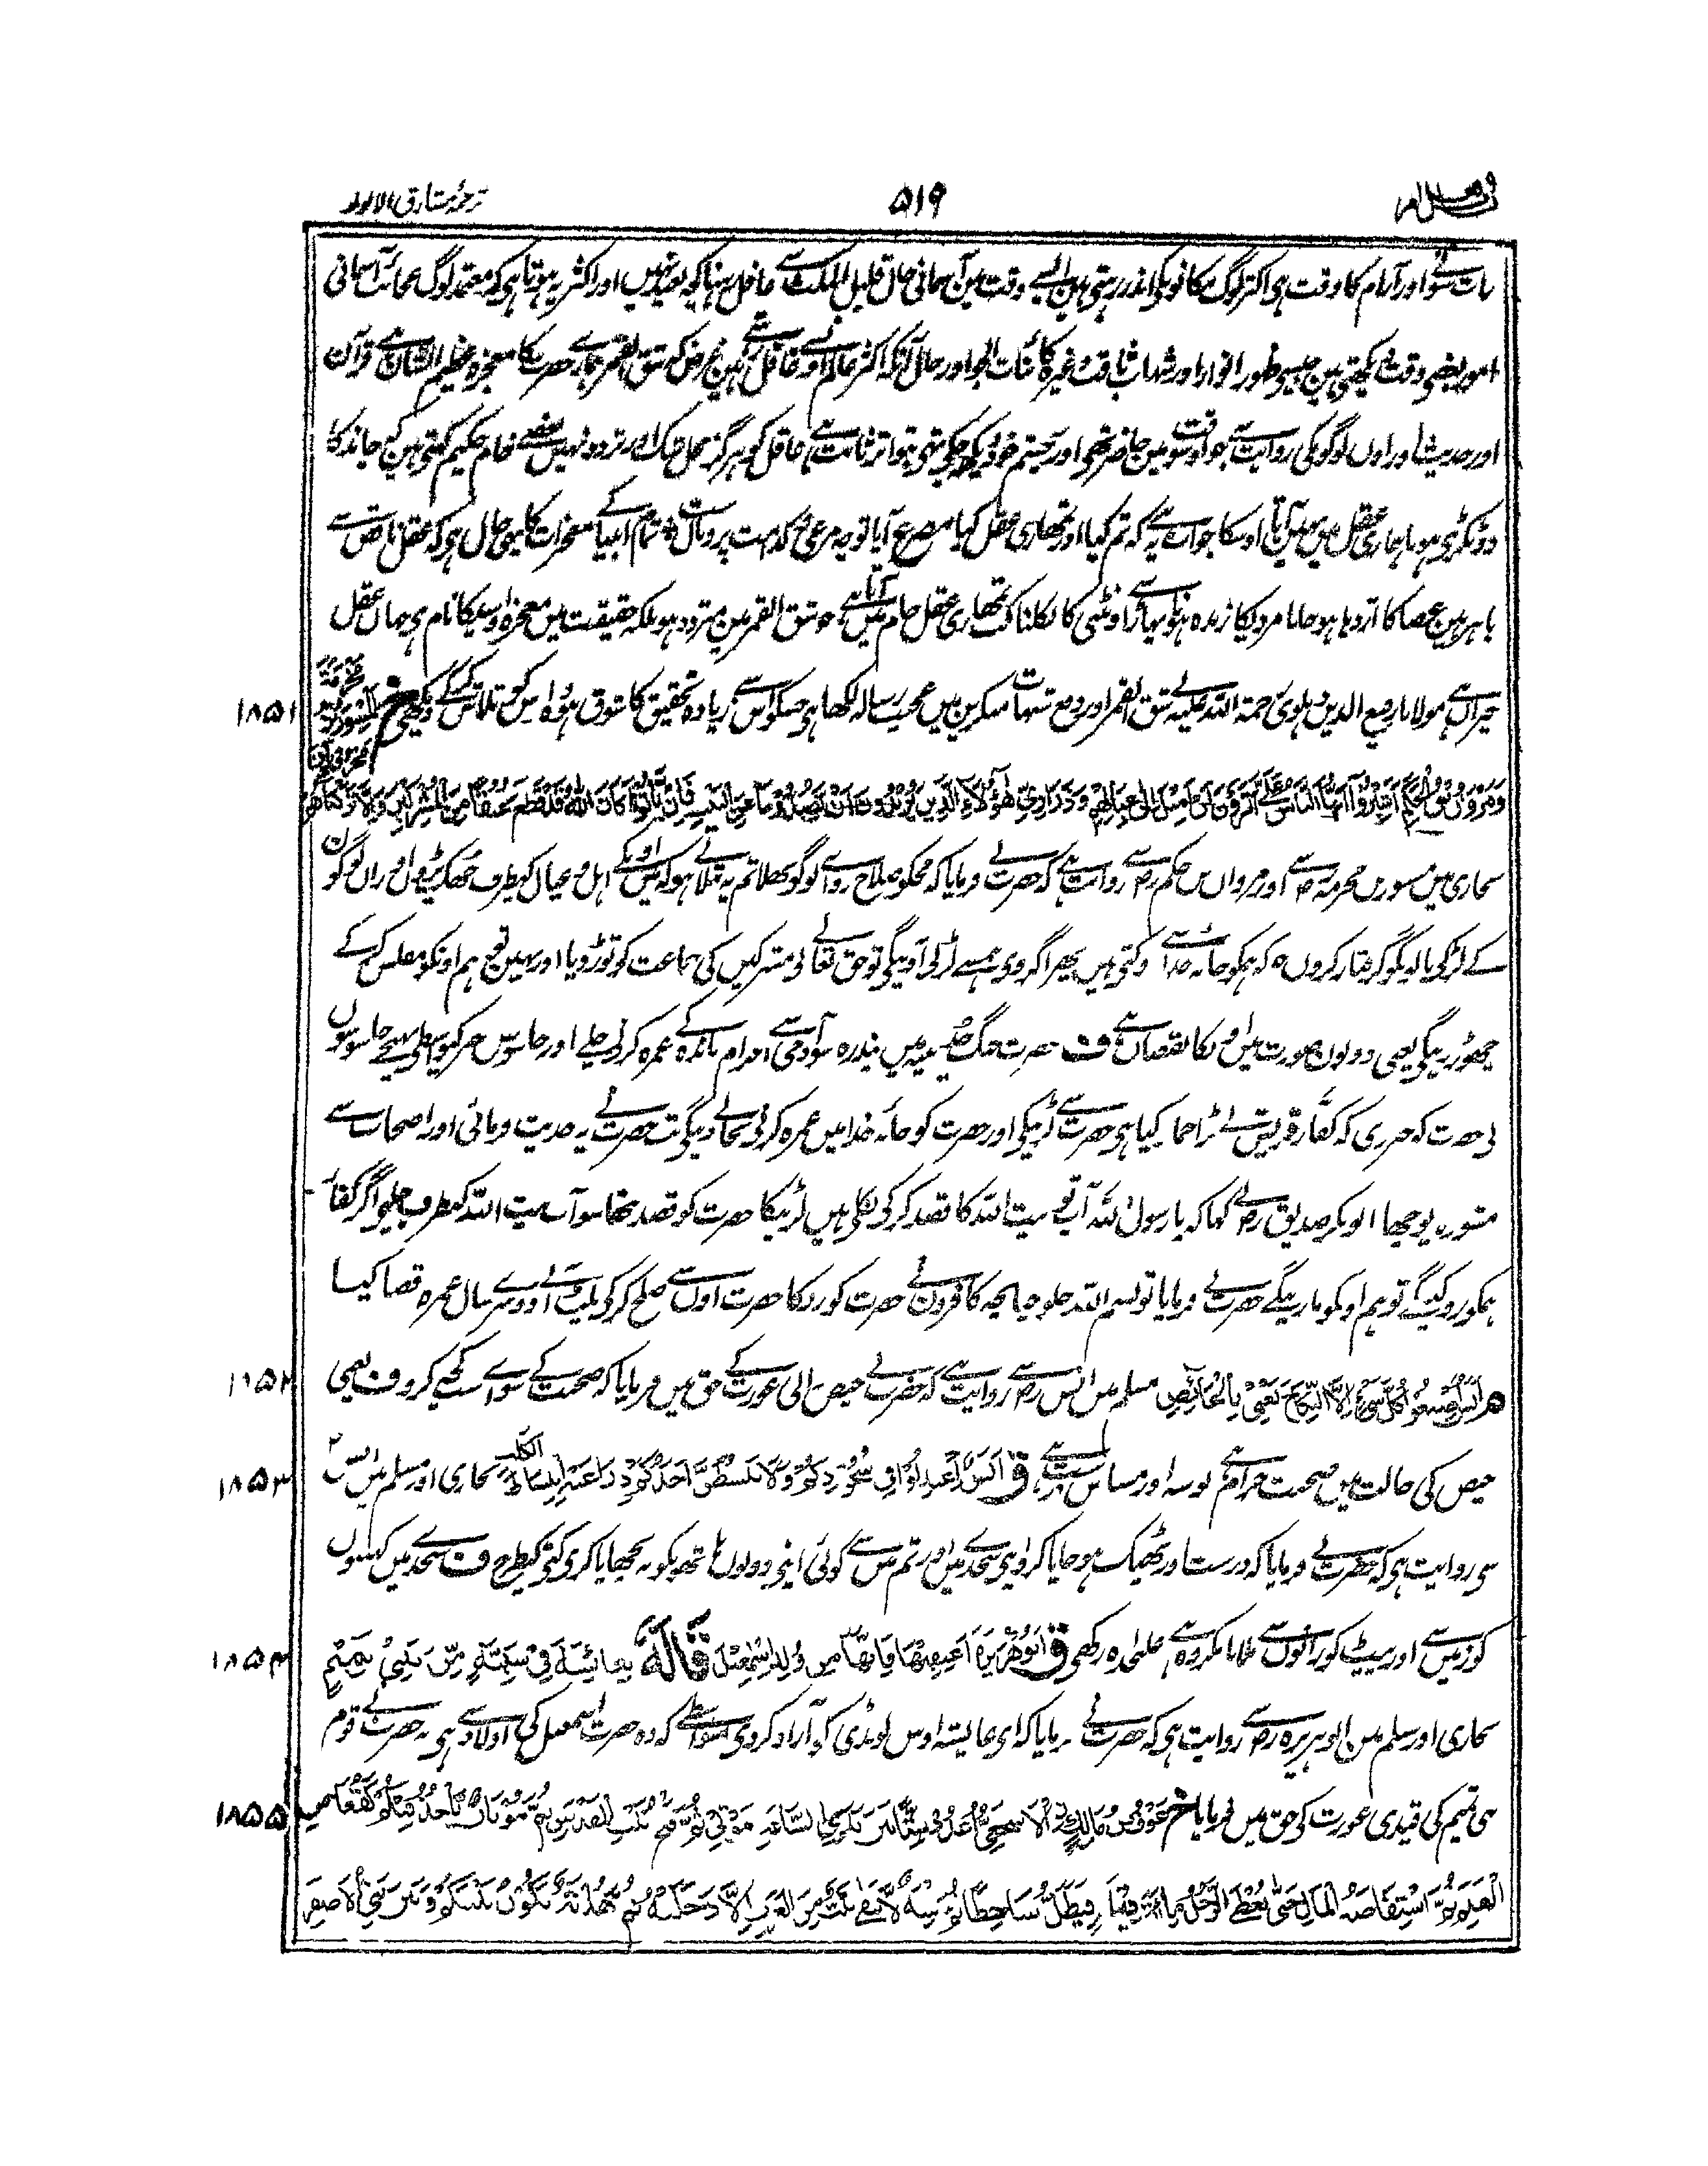 ترجمۂ مشارق الانوار
۵۱۹
رات سونے اور آرام کا وقت ہی اکثر لوگ مکانونکی اندر رہتی ہین ایسے وقت مین آسمانی حال قلیل المکث سے غافل رہنا کچھ بعید نہیں اور اکثر یہ ہوتا ہی کہ معتمد لوگ عجائب آسمانی
امور بعضی وقت دیکھتی ہین جیسی ظہور انوار اور شہاب ثاقب وغیرہ کائنات الجو اور حال آنکہ اکثر عالم اوسے غافل ہین غرض کہ شق القمر ہمارے حضرت کا معجزہ عظیم الشان ہے قرآن
اور حدیث اور اون لوگونکی روایت سے جو اوسوقت مین حاضر تھی اور بچشم خود دیکھ چکی تھی بتواتر ثابت ہے عاقل کو ہرگز محل شک اور تردد نہیں بعضے خام حکیم کہتی ہین کہ چاند کا
دو ٹکڑی ہونا ہماری عقل میں نہیں آتا اوسکا جواب یہ ہے کہ تم کیا اور تمھاری عقل کیا مصرع آیا تو چہ مرغی کدامت پر و بال تمام انبیا کے معجزات کا یہی حال ہی کہ عقل ناقص سے
باہر ہین عصا کا اژدہا ہو جانا مردیکا زندہ ہونا پہاڑ سے اونٹنی کا نکلنا کب تمھاری عقل خام میں آتا ہے جو شق القمر مین متردد ہو بلکہ حقیقت میں معجزہ اوسیکا نام ہی جہان عقل
حیران ہے مولانا رفیع الدین دہلوی رحمۃ اللہ علیہ نے شق القمر اور دفع شبہات منکرین میں عجب رسالہ لکھا ہی جسکو اس سے زیادہ تحقیق کا شوق ہو وہ اس کو تلاش کرکے دیکھی خ
۱۸۵۱
بخاری میں مسور بن مخرمہ رض سے اور مروان بن حکم رض سے روایت ہے کہ حضرت نے فرمایا کہ مجکو صلاح دو اے لوگو بھلا تم یہ بتلاتے ہو کہ میں اونکے اہل و عیال کیطرف جھک پڑون اور ان لوگون
کے لڑکی بالونکو گرفتار کرون کہ ہمکو خانۂ خدا سے روکتی ہیں پھر اگر وی ہمسے لڑنی آوینگی تو حق تعالی نے مشرکین کی جماعت کو توڑ دیا اور نہین تو ہم اونکو مفلس کرکے
چھوڑ دینگی یعنی دونون صورت میں اونکا نقصان ہے ف حضرت جنگ حدیبیہ میں پندرہ سو آدمی سے احرام باندہ کے عمرہ کرنی چلے اور جاسوس خبر کیواسطی بھیجے جاسوسون
نی حضرت کو خبر دی کہ کفار قریش نے بڑا جماؤ کیا ہی حضرت سے لڑینگی اور حضرت کو خانۂ خدا میں عمرہ کرنی نجانے دینگی تب حضرت نے یہ حدیث فرمائی اور اصحاب سے
مشورہ پوچھا ابوبکر صدیق رض نے کہا کہ یا رسول اللہ آپ تو بیت اللہ کا قصد کرکی نکلی ہیں لڑنیکا حضرت کو قصد نتھا سو آپ بیت اللہ کیطرف چلیے اگر کفار
ہمکو روکینگے تو ہم اونکو مارینگے حضرت نے فرمایا تو بسم اللہ چلو چنانچہ کافرون نے حضرت کو روکا حضرت اون سے صلح کرکی پلٹ آئے اور دوسرے سال عمرہ قضا کیا
۱۸۵۲
م انس اصنعوا کل شیء الا النکاح یعنی بالحائض مسلم میں انس رض سے روایت ہے کہ حضرت نے حیض والی عورت کے حق میں فرمایا کہ صحبت کے سوائے سب کچھ کرو ف یعنی
۱۸۵۳
حیض کی حالت میں صحبت حرام ہے بوسہ اور مساس درست ہے ق انس اعتدلوا فی سجودکم ولا یبسطن احدکم ذراعیہ انبساط الکلب بخاری اور مسلم میں انس رض
سی روایت ہی کہ حضرت نے فرمایا کہ درست اور ٹھیک ہو جایا کرو ہی سجدے میں اور تم میں سے کوئی اپنی دونون ہاتھونکو نہ بچھایا کری کتی کیطرح ف سجدے میں کہنیون
۱۸۵۴
کو زمین سے اور پیٹ کو رانون سے ملانا مکروہ ہے علیحدہ رکھی ق ابو هریرة اعتقیها فانها من ولد اسمعیل قالہ بعائشة فی سبیة من بنی تمیم
بخاری اور مسلم مین ابو ہریرہ رض سے روایت ہی کہ حضرت نے فرمایا کہ ای عایشہ اوس لونڈی کو آزاد کردی اسواسطے کہ وہ حضرت اسمعیل کی اولاد سے ہی یہ حضرت نے قوم
۱۸۵۵
بنی تمیم کی قیدی عورت کی حق میں فرمایا خ عوف بن مالک الاشجعی اعدد ستا بین یدی الساعة موتی ثم فتح بیت المقدس ثم موتان یاخذ فیکم کقعاص
الغنم ثم استفاضة المال حتی یعطی الرجل مائة دینار فیظل ساخطا ثم فتنة لا یبقی بیت من العرب الا دخلته ثم هدنة تکون بینکم وبین بنی الاصفر